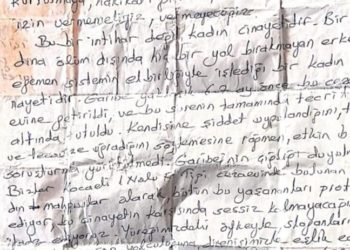 izin vermemeliyiz, vermeyeceğiz.
Bu bir intihar değil kadın cinayetidir. Bir
dına ölüm dışında hiç bir yol bırakmayan erke
egemen sistemin elbirliyle işlediği bir kadın
nayetidir. Garibe
evine getirildi, ve bu sürenin tamamında tecrit
altında tutuldu. Kendisine şiddet uygulandığını, t
ve tecavüze uğradığını söylemesine rağmen, etkin b
soruşturma yürütülmedi. Garibe'nin çığlığı duyul
Bizler Kocaeli 1 Nolu
dın mahpuslar olarak bütün bu yaşananları prot
ediyor bu cinayetin karşısında sessiz kalmayacağı
ediyoruz. Yüreğimizdeki öfkeyle sloganlar